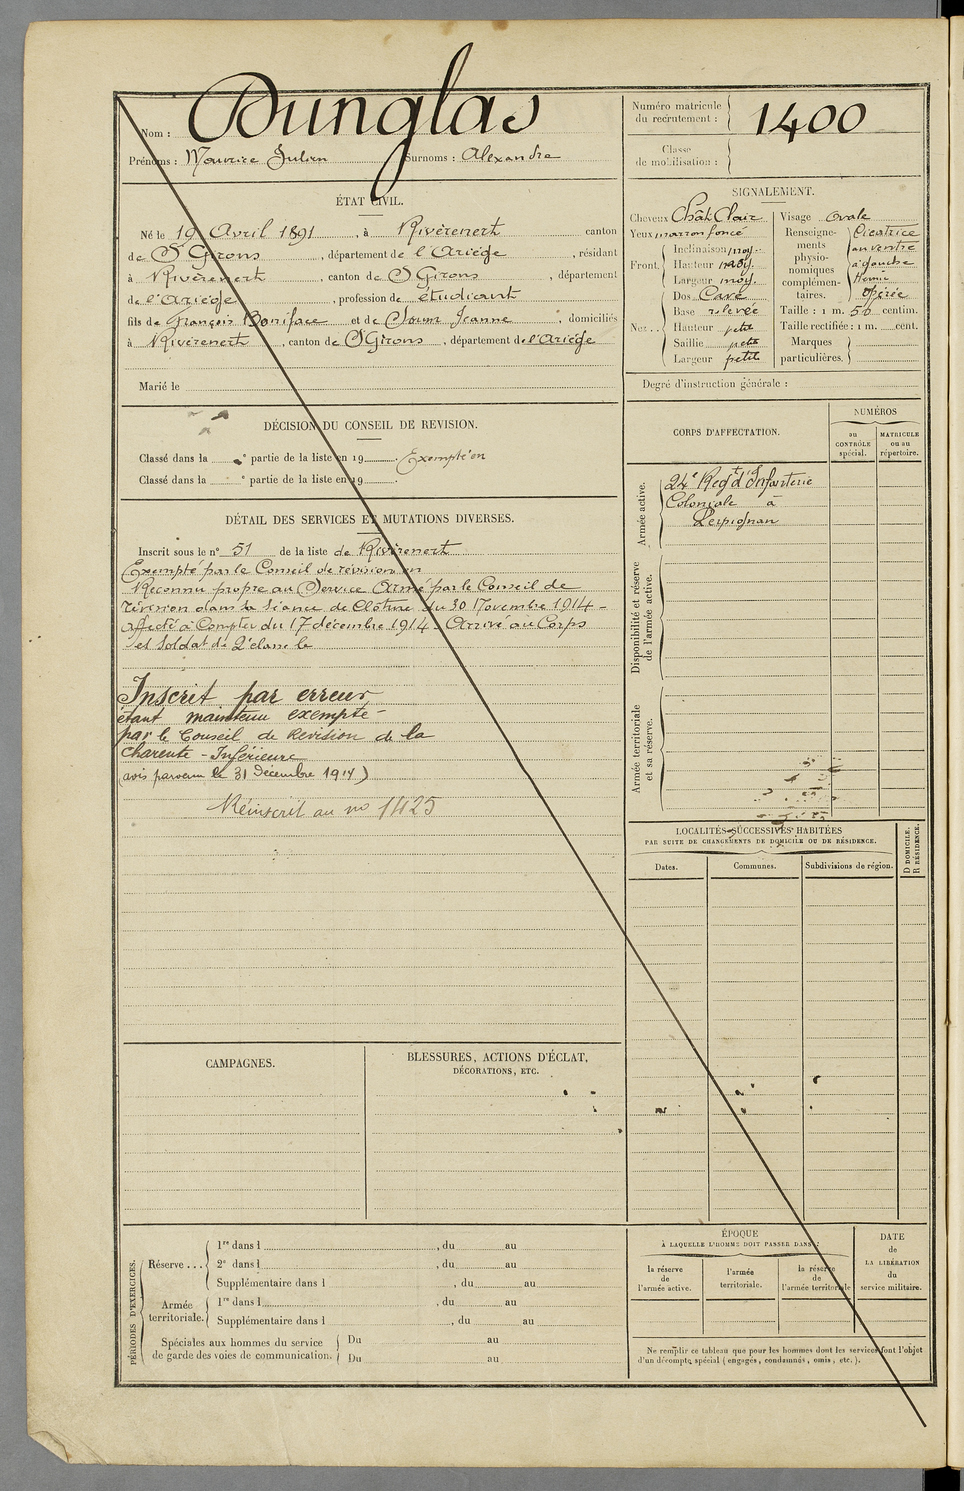 Nom : Dunglas
Prénoms : Maurice Julien Surnoms : Alexandre
Numéro matricule du recrutement : 1400
Classe de mobilisation :
ÉTAT CIVIL.
Né le 19 Avril 1891, à Rivèrenert canton
de St Girons, département de l'Ariège, résidant
à Rivèrenert, canton de St Girons, département
de l'Ariège, profession de étudiant
fils de François Boniface et de Soum Jeanne, domiciliés
à Rivèrenert, canton de St Girons, département de l'Ariège
Marié le
SIGNALEMENT.
Cheveux Chât. Clair
Yeux marron foncé
Front. Inclinaison moy.
Hauteur moy.
Largeur moy.
Nez... Dos Cave
Base relevée
Hauteur petit
Saillie petit
Largeur petit
Visage Ovale
Renseignements physionomiques complémentaires. Cicatrice
au ventre
à gauche
Hernie
Opérée
Taille : 1 m. 56 centim.
Taille rectifiée : 1 m. cent.
Marques particulières.
Degré d'instruction générale :
DÉCISION DU CONSEIL DE REVISION.
Classé dans la e partie de la liste en 19 . Exempté en
Classé dans la e partie de la liste en 19 .
DÉTAIL DES SERVICES ET MUTATIONS DIVERSES.
Inscrit sous le n° 51 de la liste de Rivèrenert
Exempté par le Conseil de révision en
Reconnu propre au Service Armé par le Conseil de
révision dans la Séance de Clôture du 30 Novembre 1914 -
Affecté à Compter du 17 décembre 1914 - Arrivé au Corps
et soldat de 2e classe le
Inscrit par erreur
étant maintenu exempté -
par le Conseil de Revision de la
Charente - Inférieure
(avis parvenu le 31 Décembre 1914)
Réinscrit au no 1425
CORPS D'AFFECTATION.
NUMÉROS
au CONTRÔLE spécial.
MATRICULE ou au répertoire.
Armée active.
24e Regt d'Infanterie
Coloniale à
Perpignan
Disponibilité et réserve de l'armée active.
Armée territoriale et sa réserve.
LOCALITÉS SUCCESSIVES HABITÉES
PAR SUITE DE CHANGEMENTS DE DOMICILE OU DE RÉSIDENCE.
Dates.
Communes.
Subdivisions de région.
D DOMICILE.
R RÉSIDENCE.
CAMPAGNES.
BLESSURES, ACTIONS D'ÉCLAT,
DÉCORATIONS, ETC.
PÉRIODES D'EXERCICES.
Réserve... 1re dans l , du au
2e dans l , du au
Supplémentaire dans l , du au
Armée territoriale. 1re dans l , du au
Supplémentaire dans l , du au
Spéciales aux hommes du service
de garde des voies de communication.
Du au
Du au
ÉPOQUE
À LAQUELLE L'HOMME DOIT PASSER DANS :
la réserve de l'armée active.
l'armée territoriale.
la réserve de l'armée territoriale
DATE
de
LA LIBÉRATION
du
service militaire.
Ne remplir ce tableau que pour les hommes dont les services font l'objet
d'un décompte spécial (engagés, condamnés, omis, etc.).